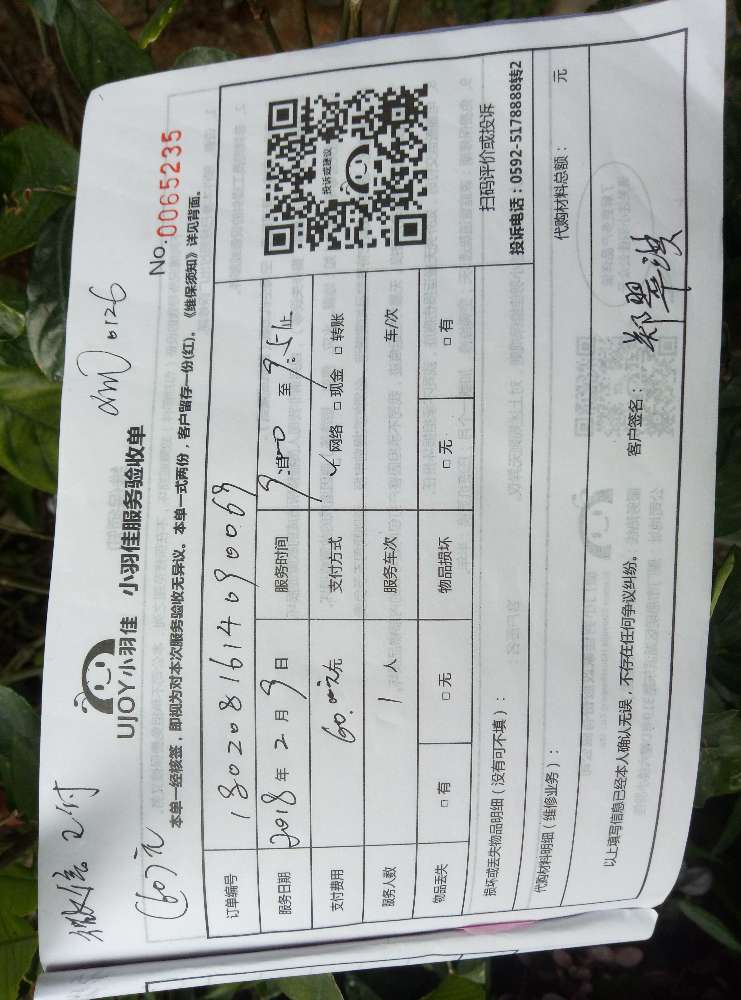 微信已付
(60)元
UJOY小羽佳 小羽佳服务验收单
No.0065235
本单一经核签，即视为对本次服务验收无异议。本单一式两份，客户留存一份(红)。《维保须知》详见背面。
订单编号 1802081614090069
服务日期 2018年2月9日 服务时间 至 9:51止
支付费用 60.00元 支付方式 ✓网络 □现金 □转账
服务人数 1人 服务车次 车/次
物品丢失 □有 □无 物品损坏 □无 □有
投诉或建议
扫码评价或投诉
投诉电话：0592-5178888转2
损坏或丢失物品明细（没有可不填）：
代购材料明细（维修业务）： 代购材料总额： 元
以上填写信息已经本人确认无误，不存在任何争议纠纷。 客户签名：